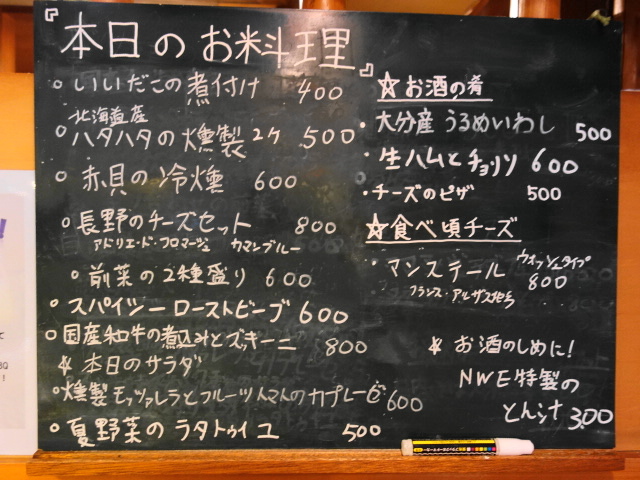 『本日のお料理』
○いいだこの煮付け 400
北海道産
○ハタハタの燻製 2ケ 500
○赤貝の冷燻 600
○長野のチーズセット 800
アトリエ・ド・フロマージュ カマンブルー
○前菜の2種盛り 600
○スパイシーローストビーフ 600
○国産和牛の煮込みとズッキーニ 800
☆本日のサラダ
○燻製モッツァレラとフルーツトマトのカプレーゼ 600
○夏野菜のラタトゥイユ 500
☆お酒の肴
・大分産 うるめいわし 500
・生ハムとチョリソ 600
・チーズのピザ 500
☆食べ頃チーズ
・マンステール ウォッシュタイプ 800
フランス・アルザス地方
☆お酒のしめに!
NWE特製の
とん汁 300